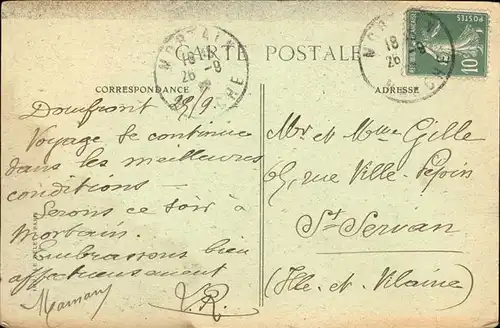 CARTE POSTALE
CORRESPONDANCE
ADRESSE
MORTAIN
18
26 -8
CHE
MORT
18
26 -8
CHE
POSTES
10
Domfront 28/9
Voyage se continue
dans les meilleures
conditions –
Serons ce soir à
Mortain.
Embrassons bien
affectueusement
Maman
V.R.
Mr et Mme Gille
65, rue Ville Pépin
St Servan
(Ille et Vilaine)